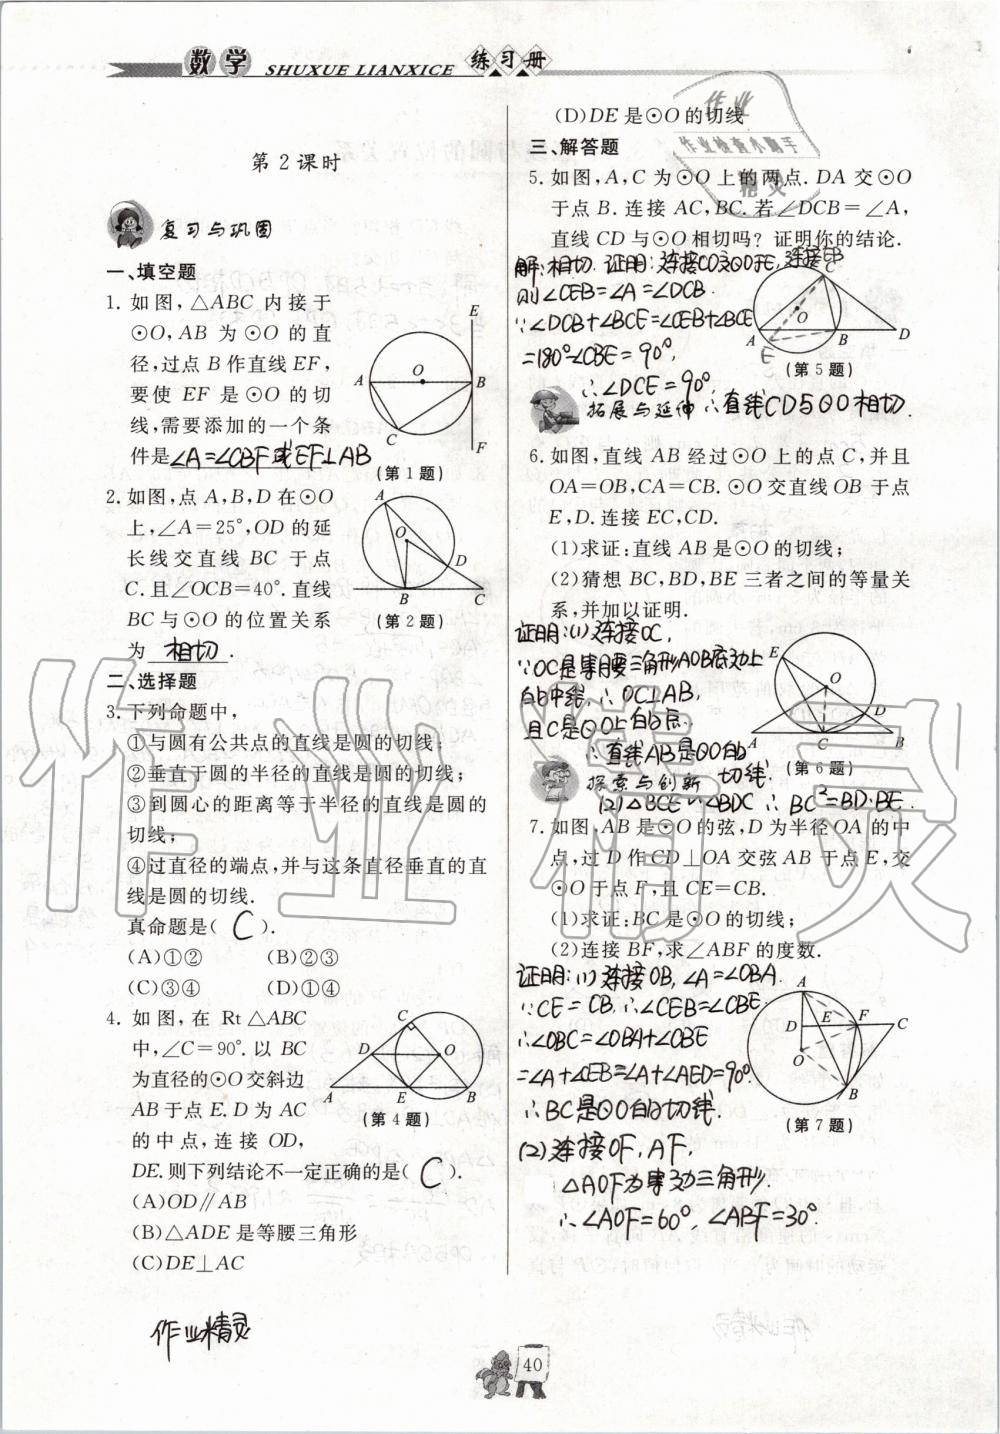 数学 SHUXUE LIANXICE 练习册
第2课时
复习与巩固
一、填空题
1. 如图,△ABC 内接于
⊙O,AB 为 ⊙O 的直
径,过点 B 作直线 EF,
要使 EF 是 ⊙O 的切
线,需要添加的一个条
件是∠A=∠CBF或EF⊥AB
(第 1 题)
2. 如图,点 A,B,D 在⊙O
上,∠A=25°,OD 的延
长线交直线 BC 于点
C.且∠OCB=40°.直线
BC与⊙O的位置关系
为 相切 .
(第 2 题)
二、选择题
3. 下列命题中,
①与圆有公共点的直线是圆的切线;
②垂直于圆的半径的直线是圆的切线;
③到圆心的距离等于半径的直线是圆的
切线;
④过直径的端点,并与这条直径垂直的直
线是圆的切线.
真命题是( C ).
(A)①② (B)②③
(C)③④ (D)①④
4. 如图,在 Rt△ABC
中,∠C=90°.以 BC
为直径的⊙O交斜边
AB于点E.D为AC
的中点,连接 OD,
DE.则下列结论不一定正确的是( C ).
(第 4 题)
(A)OD∥AB
(B)△ADE 是等腰三角形
(C)DE⊥AC
作业精灵
(D)DE 是⊙O 的切线
三、解答题
5. 如图,A,C 为⊙O 上的两点.DA 交⊙O
于点 B.连接 AC,BC.若∠DCB=∠A,
直线 CD 与⊙O 相切吗?证明你的结论.
解:相切. 证明:连接CO交⊙O于E,连接EB
则∠CEB=∠A=∠DCB.
∵∠DCB+∠BCE=∠CEB+∠BCE
=180°-∠CBE=90°,
∴∠DCE=90°.
(第 5 题)
拓展与延伸 ∴直线CD与⊙O相切.
6. 如图,直线 AB 经过⊙O 上的点 C,并且
OA=OB,CA=CB.⊙O 交直线 OB 于点
E,D.连接 EC,CD.
(1)求证:直线 AB 是⊙O 的切线;
(2)猜想 BC,BD,BE 三者之间的等量关
系,并加以证明.
证明:(1)连接OC,
∵OC是等腰三角形AOB底边上
的中线,∴OC⊥AB,
且C是⊙O上的点.
∴直线AB是⊙O的
切线.
(第 6 题)
探索与创新
(2)△BCE∽△BDC ∴BC²=BD·BE.
7. 如图,AB 是⊙O 的弦,D 为半径 OA 的中
点,过 D 作 CD⊥OA 交弦 AB 于点 E,交
⊙O 于点 F,且 CE=CB.
(1)求证:BC 是⊙O 的切线;
(2)连接 BF,求∠ABF 的度数.
证明:(1)连接OB,∠A=∠OBA.
∵CE=CB,∴∠CEB=∠CBE.
∴∠OBC=∠OBA+∠CBE
=∠A+∠CEB=∠A+∠AED=90°.
∴BC是⊙O的切线.
(第 7 题)
(2)连接OF,AF,
△AOF为等边三角形.
∴∠AOF=60°,∠ABF=30°.
40